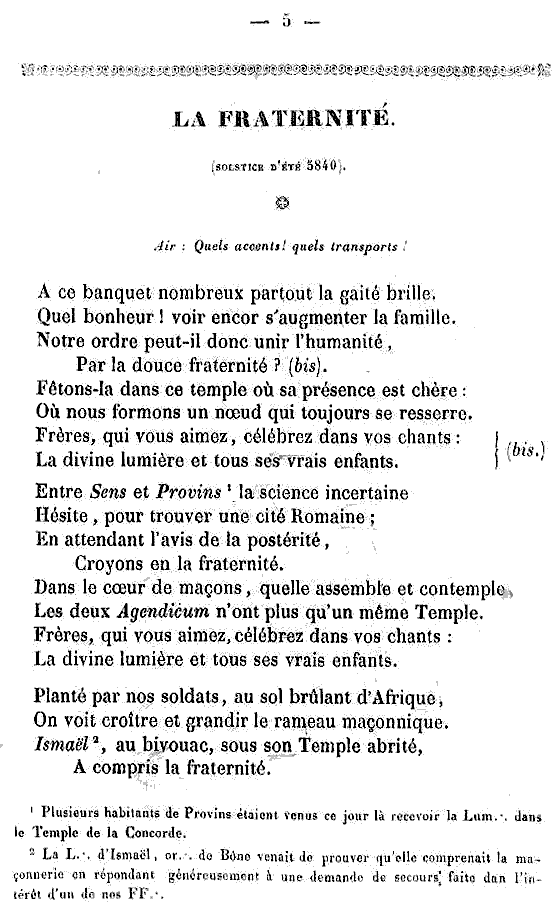 — 5 —
LA FRATERNITÉ.
(SOLSTICE D'ÉTÉ 5840).
Air : Quels accents! quels transports !
A ce banquet nombreux partout la gaité brille.
Quel bonheur ! voir encor s'augmenter la famille.
Notre ordre peut-il donc unir l'humanité,
Par la douce fraternité ? (bis).
Fêtons-la dans ce temple où sa présence est chère :
Où nous formons un nœud qui toujours se resserre.
Frères, qui vous aimez, célébrez dans vos chants :
La divine lumière et tous ses vrais enfants.
(bis.)
Entre Sens et Provins ¹ la science incertaine
Hésite, pour trouver une cité Romaine ;
En attendant l'avis de la postérité,
Croyons en la fraternité.
Dans le cœur de maçons, quelle assemble et contemple,
Les deux Agendicum n'ont plus qu'un même Temple.
Frères, qui vous aimez, célébrez dans vos chants :
La divine lumière et tous ses vrais enfants.
Planté par nos soldats, au sol brûlant d'Afrique,
On voit croître et grandir le rameau maçonnique.
Ismaël ², au bivouac, sous son Temple abrité,
A compris la fraternité.
¹ Plusieurs habitants de Provins étaient venus ce jour là recevoir la Lum.·. dans
le Temple de la Concorde.
² La L.·. d'Ismaël, or.·. de Bône venait de prouver qu'elle comprenait la ma-
çonnerie en répondant généreusement à une demande de secours, faite dan l'in-
térêt d'un de nos FF.·.